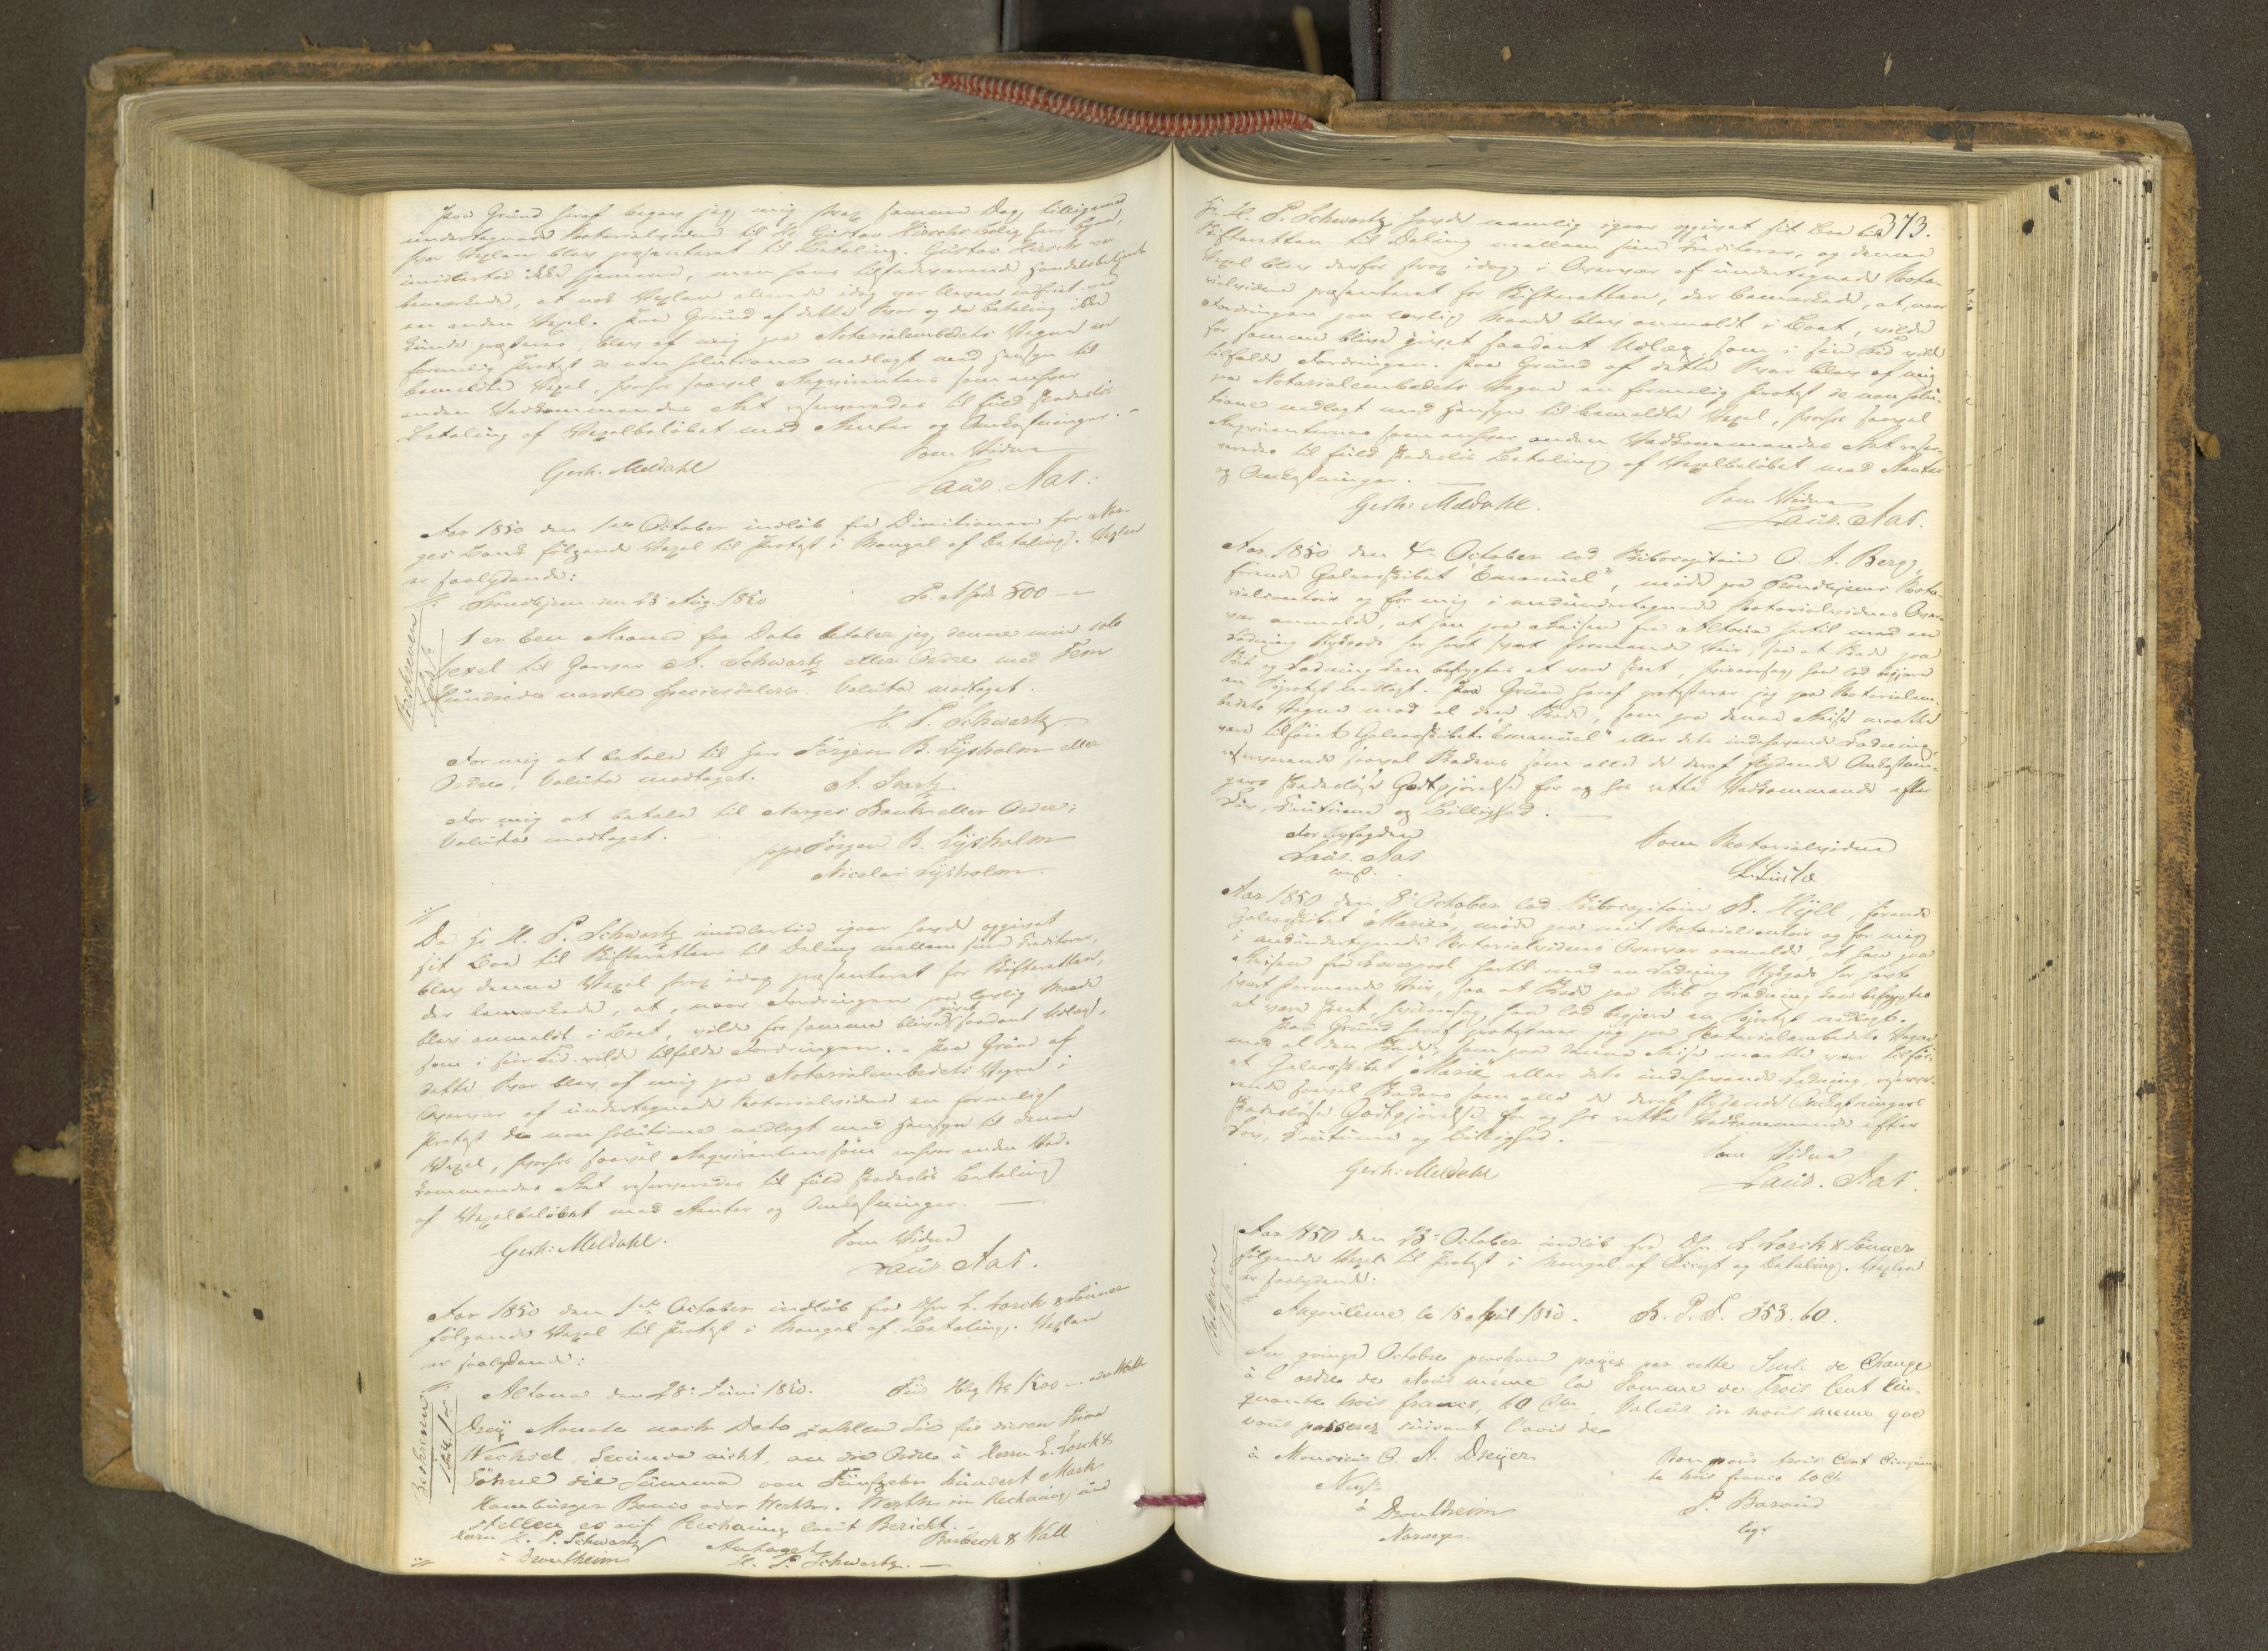 Paa Grund heraf begav jeg mig strax samme Dag tilligemed
undertegnede Notarialvidne til H. Gustav Hirschs Bolig her i Byen,
hvor Vexlen blev præsenteret til Betaling. Gustav Hirsch var
imidlertid ikke hjemme, men hans tilstedeværende Handelsbetjente
bemærkede, at nok Vexlen allerede idag var bleven indfriet ved
en anden Vexel. Paa Grund af dette Svar og da Betaling ikke
kunde præsteres, blev af mig paa Notarialembedets Vegne en
formelig Protest de non solutione nedlagt med Hensyn til
bemeldte Vexel, hvorhos saavel Requirentens som enhver
anden Vedkommendes Ret reserveredes til fuld skadesløs
Betaling af Vexelbeløbet med Renter og Omkostninger. -
Som Vidne
Gerh. Meldahl
Laur. Aas.
Aar 1850 den 1ste October indløb fra Directionen for Nor-
ges Bank følgende Vexel til Protest i Mangel af Betaling. Vexlen
er saalydende:
Trondhjem den 28 Aug. 1850 500
Beskreven
1 er. Een Maaned fra Dato betaler jeg denne min sola
Vexel til Herr A. Schwartz eller Ordre med Fem
Hundrede norske Speciesdaler. Valuta modtaget.
H. P. Schwartz.
For mig at betale til Herr Jörgen B. Lysholm eller
Ordre, Valuta modtaget.
A. Svartz
For mig at betale til Norges Bank eller Ordre;
Valuta modtaget.
Jörgen B. Lysholm
Nicolai Lysholm.
Da Hr H. P. Schwartz imidlertid igaar havde opgivet
sit Bo til Skifteretten til Deling mellem sine Creditorer,
blev denne Vexel strax idag præsenteret for Skifteretten,
der bemærkede, at, naar Fordringen paa lovlig Maade
blev anmeldt i Boet, vilde for samme blive givet saadant Udlæg,
som i sin Tid vilde tilfalde Fordringen. - Paa Grund af
dette Svar blev af mig paa Notarialembedets Vegne i
Overvær af undertegnede Notarialvidne en formelig
Protest de non solutione nedlagt med Hensyn til denne
Vexel, hvorhos saavel Requirentens som enhver anden Ved-
kommendes Ret reserveredes til fuld skadesløs Betaling
af Vexelbeløbet med Renter og Omkostninger.
Som Vidne
Gerh: Meldahl.
Laur. Aas.
Aar 1850 den 1ste October indløb fra Dhr. L. Lorck & Sönner
følgende Vexel til Protest i Mangel af Betaling. Vexlen
er saalydende:
Altona den 28 Juni 1850. Für Hbg Bco 1500
Beskreven
Drey Monate nach Dato zahlen Sie für diesen Prima
Wechsel, Secunda nicht, an die Ordre à Herrn L. Lorck &
Söhne die Summa von Fünfzehn hundert Mark
Hamburger Banco oder Werth. Werth in Rechnung und
stellen es auf Rechnung laut Bericht.
Herrn H. P. Schwartz
à Drontheim
Antaget
H. P. Schwartz.
& Wall
373.
Hr H. P. Schwartz havde nemlig igaar opgivet sit Boe til
Skifteretten til Deling mellem sine Creditorer, og denne
Vexel blev derfor strax idag i Overvær af undertegnede Nota-
rialvidne præsenteret for Skifteretten, der bemærkede, at, naar
Fordringen paa lovlig Maade blev anmeldt i Boet, vilde
for samme blive givet saadant Udlæg, som i sin Tid vilde
tilfalde Fordringen. Paa Grund af dette Svar blev af mig
paa Notarialembedets Vegne en formelig Protest de non solu-
tione nedlagt med Hensyn til bemeldte Vexel, hvorhos saavel
Requirenternes som enhver anden Vedkommendes Ret reser-
veredes til fuld skadesløs Betaling af Vexelbeløbet med Renter
og Omkostninger.
Som Vidne
Gerh: Meldahl.
Laur. Aas.
Aar 1850 den 4de October lod Skibscapitain O. A. Berg,
førende Galeasskibet "Emanuel", møde paa Trondhjems Nota-
rialcontoir og for mig i medundertegnede Notarialvidnes Over-
vær anmelde, at han paa Reisen fra Altona hertil med en
Ladning Stykgods har havt svært stormende Veir, saa at Skade paa
Skib og Ladning kan befrygtes at være skeet, hvisaarsag han lod begjære
en Søprotest nedlagt. Paa Grund heraf protesterer jeg paa Notarialem-
bedets Vegne mod al den Skade, som paa denne Reise maatte
være tilføiet Galeasskibet "Emanuel" eller dets indehavende Ladning,
reserverende saavel Skadens som alle de deraf flydende Omkostnin-
gers skadesløse Godtgjørelse for og hos rette Vedkommende efter
Lov, Coutume og Billighed.
Laur. Aas
const.
Som Notarialvidne
Aar 1850 den 8de October lod Skibscapitain B. Hyll, førende
Galeasskibet "Marie", møde paa mit Notarialcontoir og for mig
i medundertegnede Notarialvidnes Overvær anmelde, at han paa
Reisen fra Liverpool hertil med en Ladning Stykgods har havt
svært stormende Veir, saa at Skade paa Skib og Ladning kan befrygtes
at være skeet, hvisaarsag han lod begjære en Søprotest nedlagt.
Paa Grund heraf protesterer jeg paa Notarialembedets Vegne
mod al den Skade, som paa denne Reise maatte være tilføi-
et Galeasskibet "Marie" eller dets indehavende Ladning, reserve-
rende saavel Skadens som alle de deraf flydende Omkostningers
skadesløse Godtgjørelse for og hos rette Vedkommende efter
Lov, Coutume og Billighed.
Som Vidne
Gerh: Meldahl
Laur. Aas.
Aar 1850 den 23de October indløb fra Dhr. L. Lorck & Sönner
følgende Vexel til Protest i Mangel af Accept og Betaling. Vexlen
er saalydende:
Beskreven
Angoulême le 15 April 1850. B. P. F. 353. 60.
Au quinze Octobre prochain payez par cette Seule de Change
à l'ordre de Nous même la Somme de Trois Cent Cin-
quante trois francs, 60 Cms. Valeur en nous même que
vous passerez suivant l'avis de
à Monsieur O. A. Dreyer
Negt
à Drontheim
Norvège.
Bon pour trois Cent Cinquan-
te trois francs 60 Cs
P.